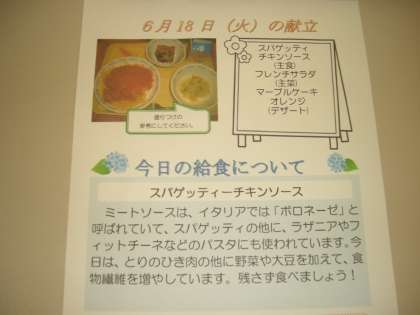 6月18日（火）の献立
スパゲッティ
チキンソース
（主食）
フレンチサラダ
（主菜）
マーブルケーキ
オレンジ
（デザート）
盛りつけの
参考にしてください。
今日の給食について
スパゲッティーチキンソース
ミートソースは、イタリアでは「ボロネーゼ」と
呼ばれていて、スパゲッティの他に、ラザニアやフ
ィットチーネなどのパスタにも使われています。今
日は、とりのひき肉の他に野菜や大豆を加えて、食
物繊維を増やしています。残さず食べましょう！